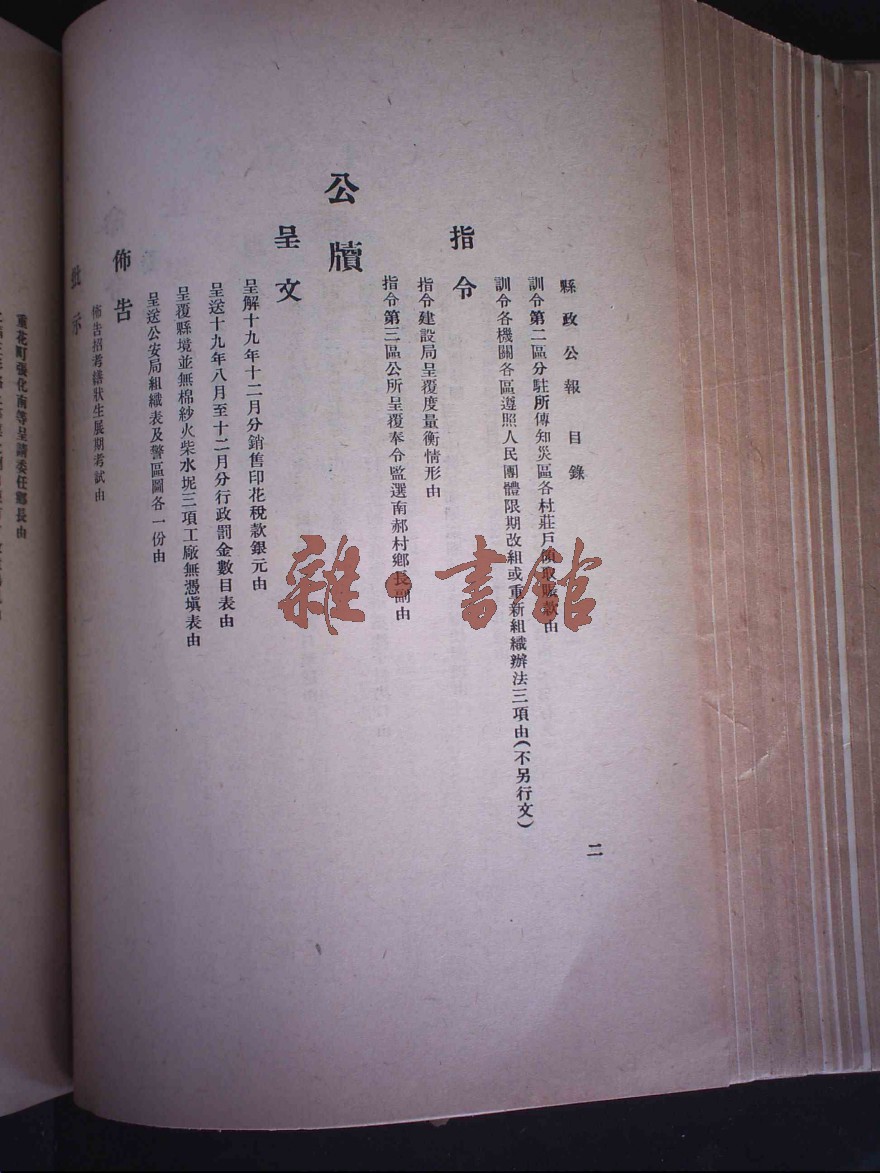 縣政公報 目錄
二
訓令第二區分駐所傳知災區各村莊戶領取賑款由
訓令各機關各區遵照人民團體限期改組或重新組織辦法三項由(不另行文)
指令
指令建設局呈覆度量衡情形由
指令第三區公所呈覆奉令監選南郝村鄉長副由
公牘
呈文
呈解十九年十二月分銷售印花稅款銀元由
呈送十九年八月至十二月分行政罰金數目表由
呈覆縣境並無棉紗火柴水坭三項工廠無憑塡表由
呈送公安局組織表及警區圖各一份由
佈告
佈告招考繕狀生展期考試由
批示
張化南等呈請委任鄉長由
雜·書館